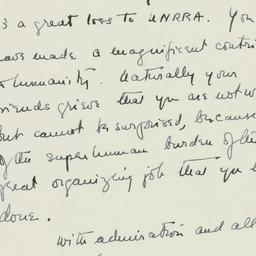 s a great loss to UNRRA. You
ave made a magnificent contri
humanity. Naturally your
riends grieve that you are not w
but cannot be surprised, because
of the superhuman burden of the
great organizing job that you
done.
with admiration and all